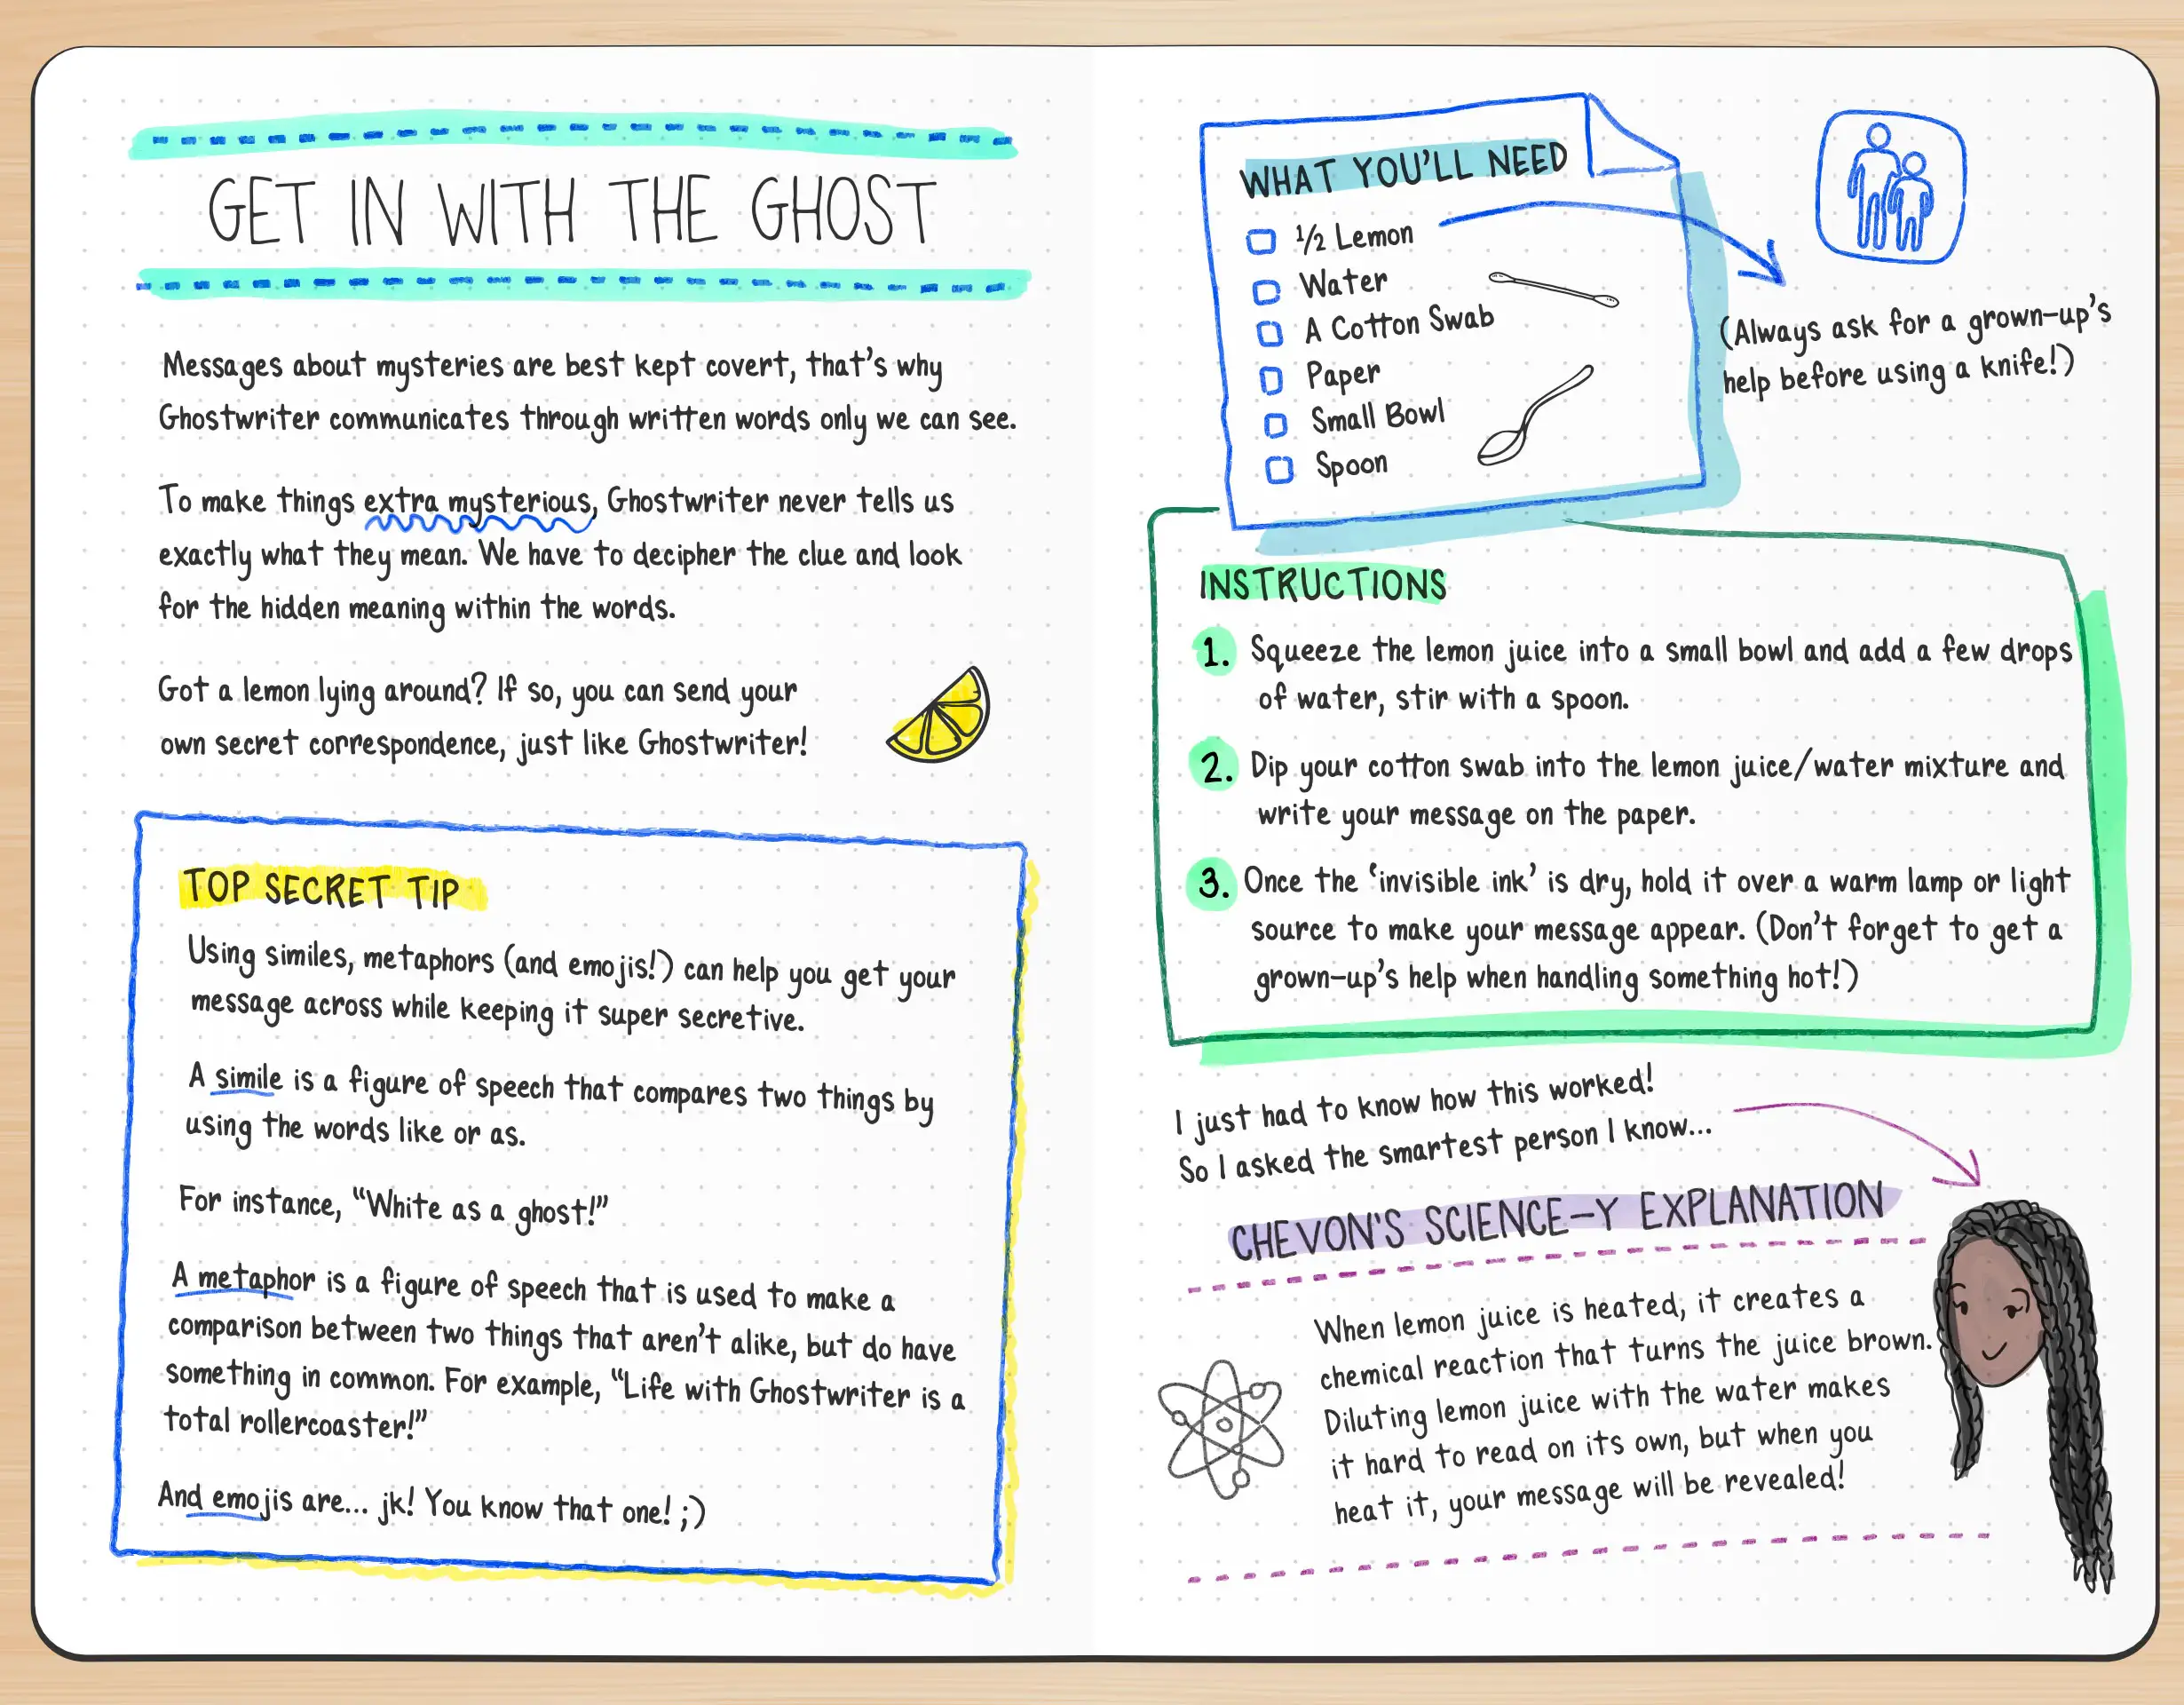 GET IN WITH THE GHOST
Messages about mysteries are best kept covert, that's why
Ghostwriter communicates through written words only we can see.
To make things extra mysterious, Ghostwriter never tells us
exactly what they mean. We have to decipher the clue and look
for the hidden meaning within the words.
Got a lemon lying around? If so, you can send your
own secret correspondence, just like Ghostwriter!
TOP SECRET TIP
Using similes, metaphors (and emojis!) can help you get your
message across while keeping it super secretive.
A simile is a figure of speech that compares two things by
using the words like or as.
For instance, "White as a ghost!"
A metaphor is a figure of speech that is used to make a
comparison between two things that aren't alike, but do have
something in common. For example, "Life with Ghostwriter is a
total rollercoaster!"
And emojis are... jk! You know that one! ;)
WHAT YOU'LL NEED
½ Lemon
Water
A Cotton Swab
Paper
Small Bowl
Spoon
(Always ask for a grown-up's
help before using a knife!)
INSTRUCTIONS
1. Squeeze the lemon juice into a small bowl and add a few drops
of water, stir with a spoon.
2. Dip your cotton swab into the lemon juice/water mixture and
write your message on the paper.
3. Once the 'invisible ink' is dry, hold it over a warm lamp or light
source to make your message appear. (Don't forget to get a
grown-up's help when handling something hot!)
I just had to know how this worked!
So I asked the smartest person I know...
CHEVON'S SCIENCE-Y EXPLANATION
When lemon juice is heated, it creates a
chemical reaction that turns the juice brown.
Diluting lemon juice with the water makes
it hard to read on its own, but when you
heat it, your message will be revealed!